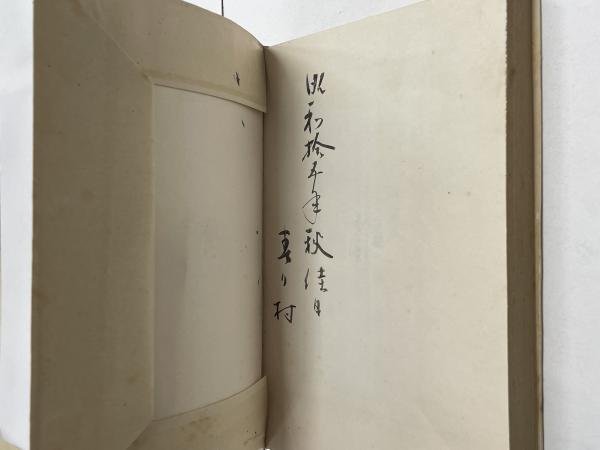 昭和拾五年秋佳日
村